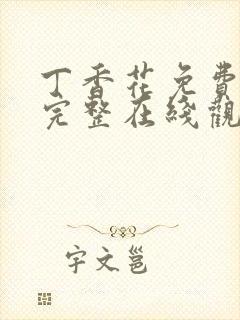 丁香花免費
完整在綫觀
宇文邕